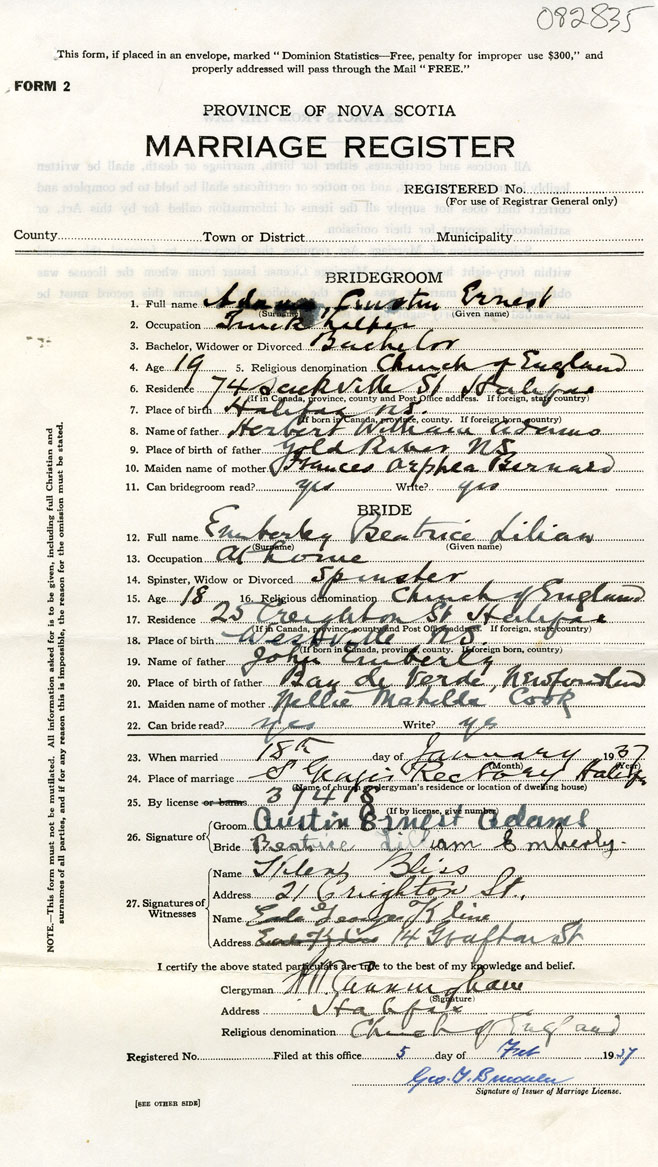 082835
This form, if placed in an envelope, marked "Dominion Statistics—Free, penalty for improper use $300," and
properly addressed will pass through the Mail "FREE."
FORM 2
PROVINCE OF NOVA SCOTIA
MARRIAGE REGISTER
REGISTERED No.
(For use of Registrar General only)
County Town or District Municipality
BRIDEGROOM
1. Full name Adams, Austin Ernest
(Surname) (Given name)
2. Occupation Truck helper
3. Bachelor, Widower or Divorced Bachelor
4. Age 19 5. Religious denomination Church of England
6. Residence 74 Sackville St Halifax
(If in Canada, province, county and Post Office address. If foreign, state country)
7. Place of birth Halifax N.S.
(If born in Canada, province, county. If foreign born, country)
8. Name of father Herbert William Adams
9. Place of birth of father Gold River NS
10. Maiden name of mother Frances Orphea Bernard
11. Can bridegroom read? yes Write? yes
BRIDE
12. Full name Emberley Beatrice Lilian
(Surname) (Given name)
13. Occupation At home
14. Spinster, Widow or Divorced Spinster
15. Age 18 16. Religious denomination Church of England
17. Residence 25 Creighton St Halifax
(If in Canada, province, county and Post Office address. If foreign, state country)
18. Place of birth Westville N.S.
(If born in Canada, province, county. If foreign born, country)
19. Name of father John Emberly
20. Place of birth of father Bay de Verde, Newfoundland
21. Maiden name of mother Nellie Matilda Cook
22. Can bride read? yes Write? yes
23. When married 18th day of January 1937
(Month) (Year)
24. Place of marriage St Georges Rectory Halifax
(Name of church, clergyman's residence or location of dwelling house)
25. By license or banns 37418
(If by license, give number)
26. Signature of Groom Austin Ernest Adams
Bride Beatrice Lilliam Emberly.
27. Signatures of Witnesses
Name Helena Bliss
Address 21 Creighton St.,
Name Earle George Kline
Address 14 Grafton St
I certify the above stated particulars are true to the best of my knowledge and belief.
Clergyman Cunningham
(Signature)
Address Halifax
Religious denomination Church of England
Registered No. Filed at this office 5 day of Feb 1937
Geo.
Signature of Issuer of Marriage License.
[SEE OTHER SIDE]
NOTE.—This form must not be mutilated. All information asked for is to be given, including full Christian and
surnames of all parties, and if for any reason this is impossible, the reason for the omission must be stated.